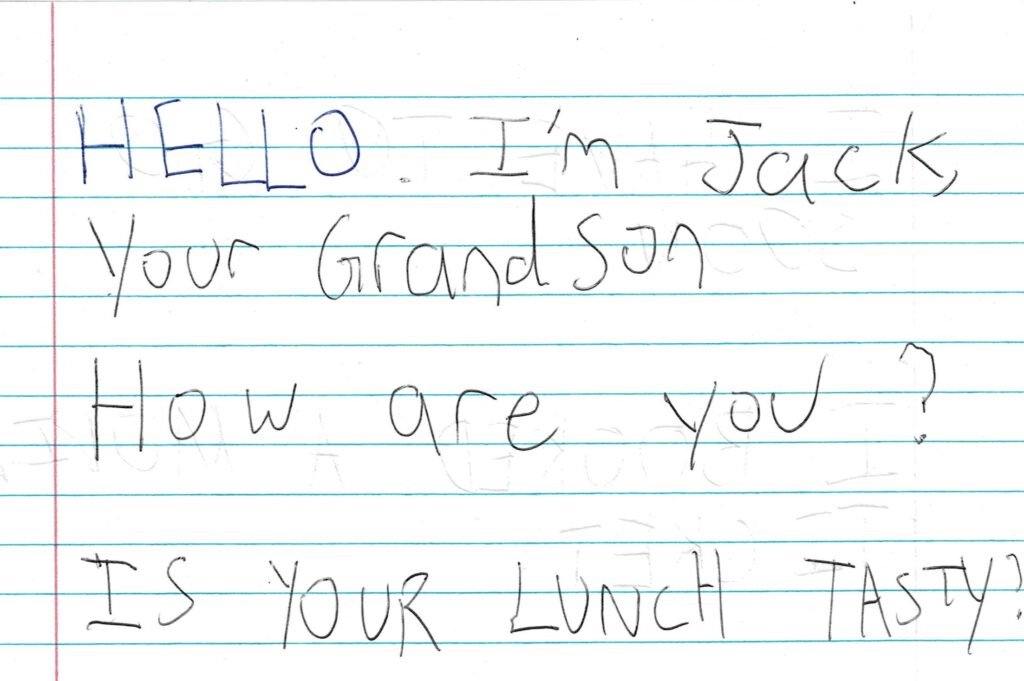 HELLO. I'm Jack,
Your Grandson
How are you?
IS YOUR LUNCH TASTY?